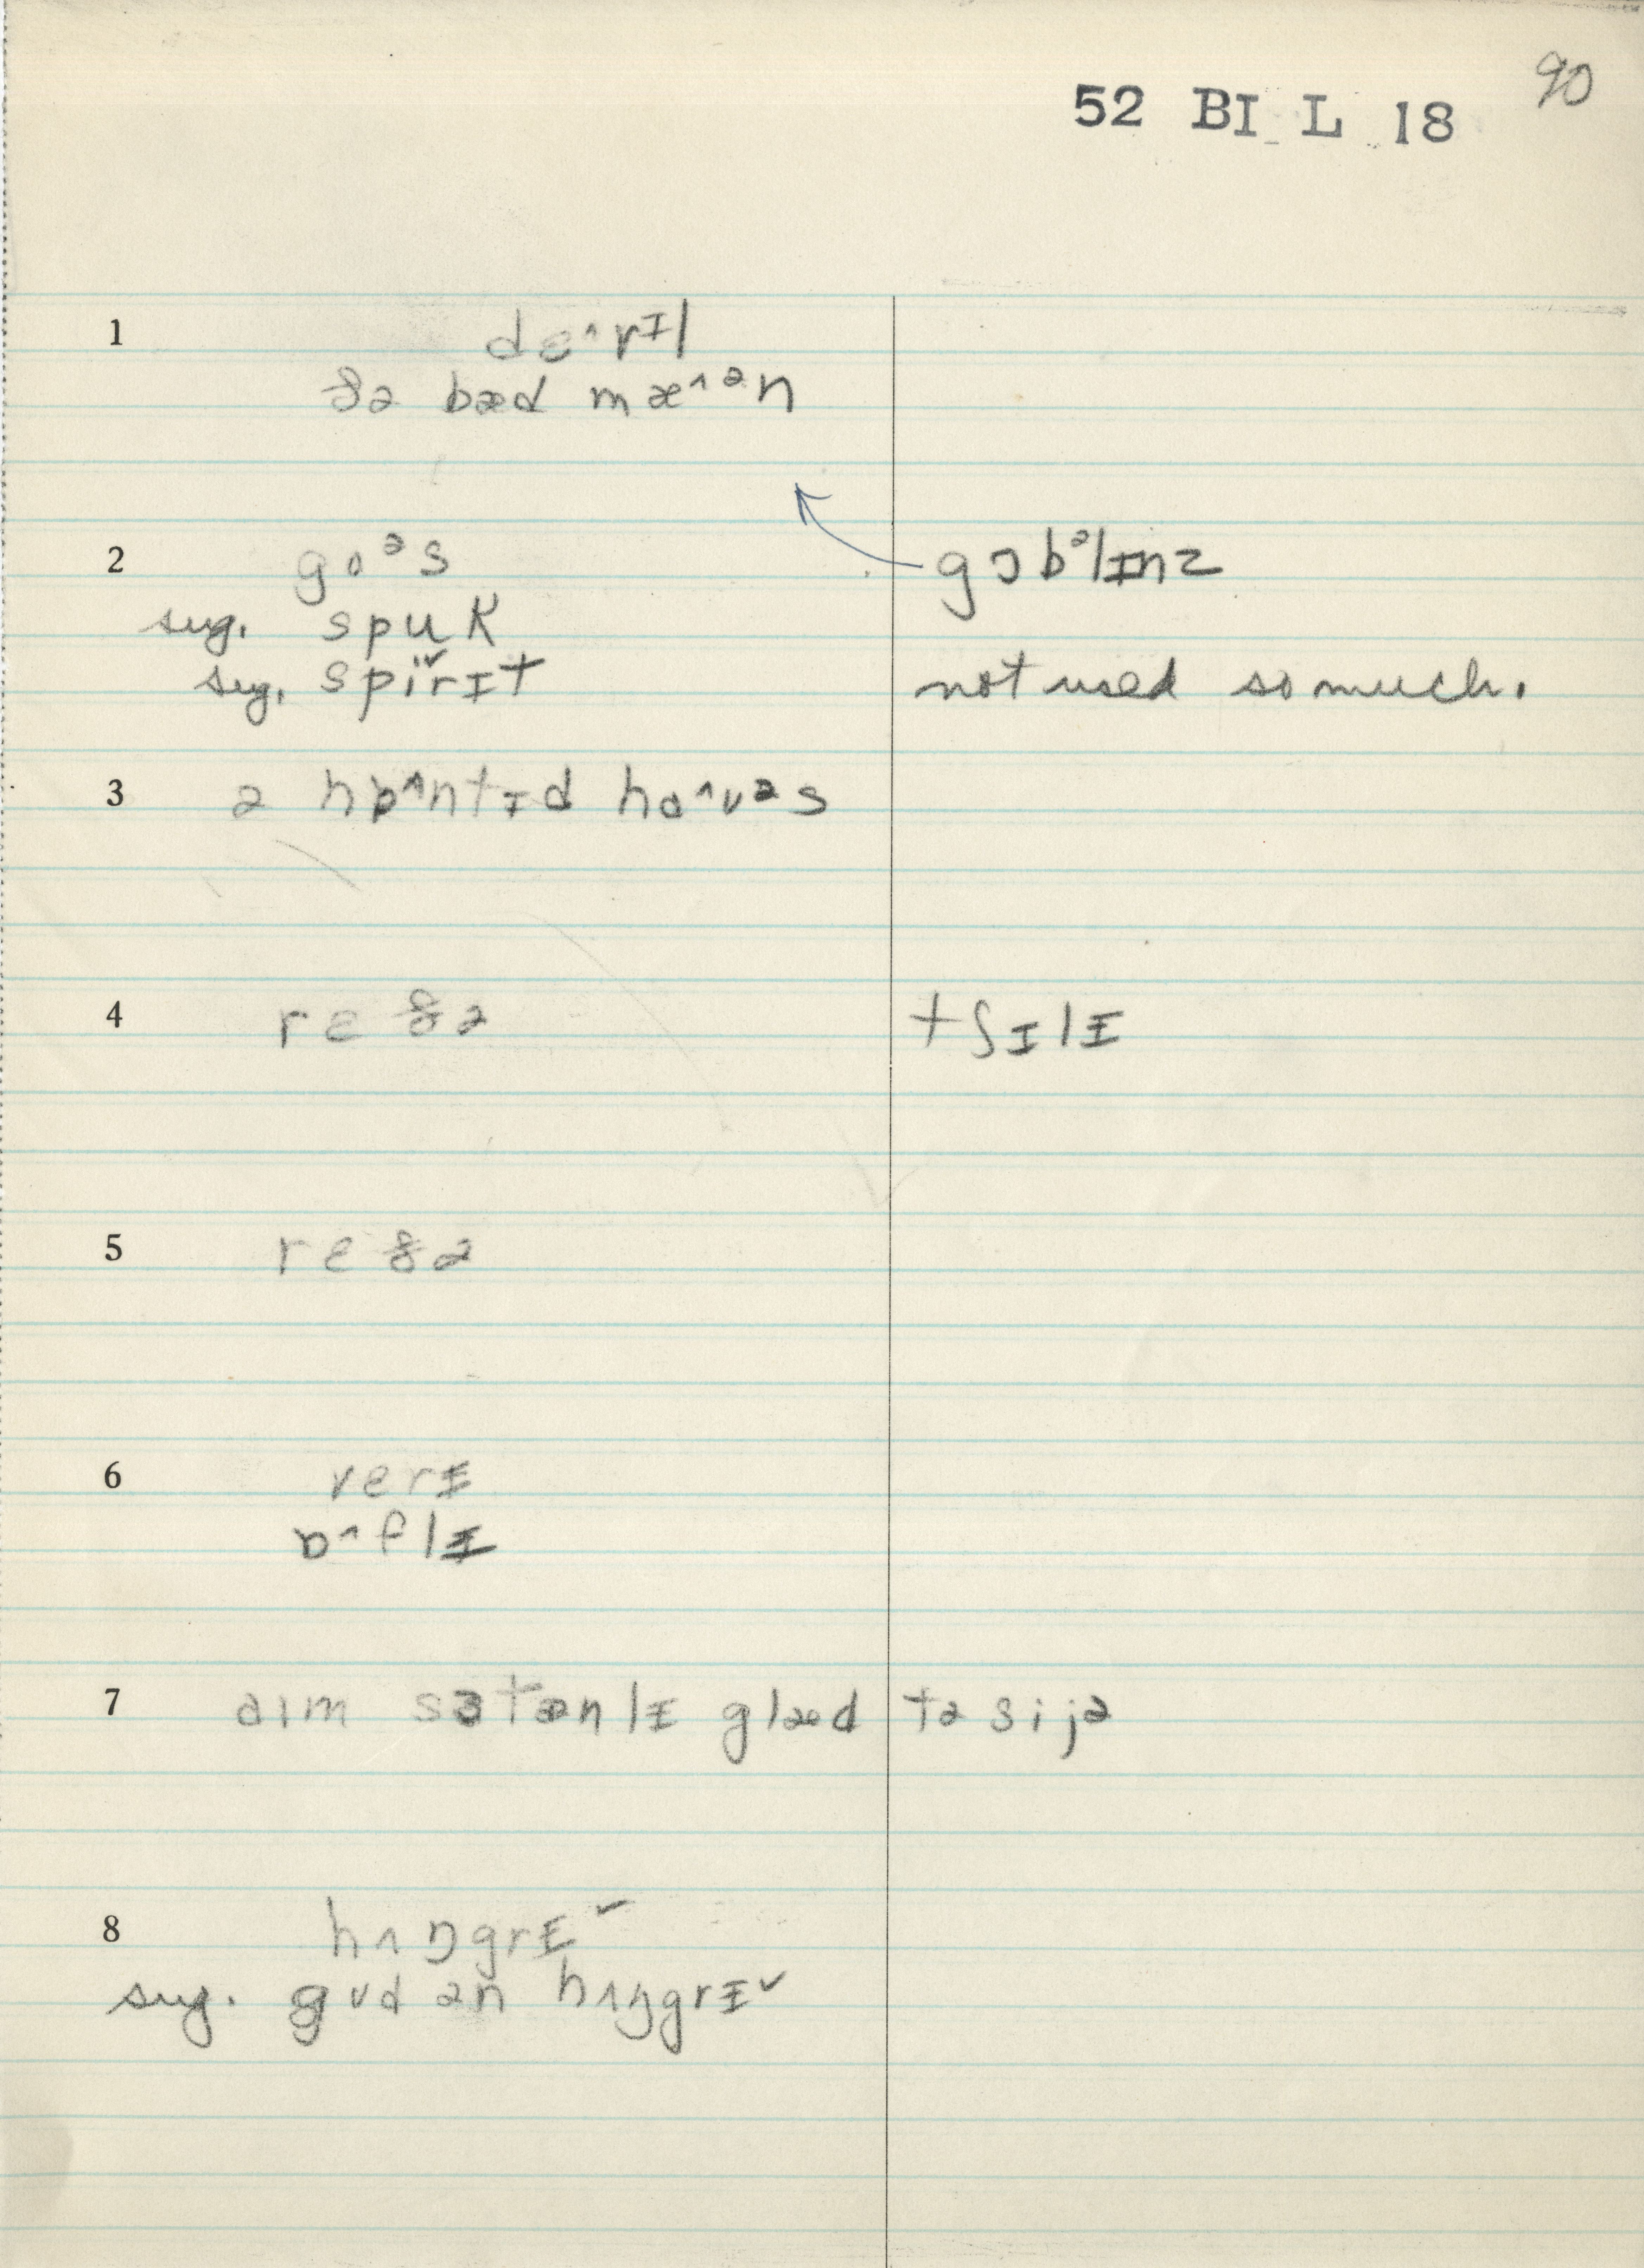 90
52 BI L 18
1 dɛ^vɪl
ðə bæd mæ^ᵊn
2 goᵊs gɔbᵊlɪnz
sug. spuk
sug. spi˅rɪt not used so much.
3 ə hɒ^ntɪd hɑ^ʊᵊs
4 rɛðə tʃɪlɪ
5 rɛðə
6 verɪ
ɒ^flɪ
7 aɪm sɜtænlɪ glæd tə si jə
8 hʌŋgrɪ˅
sug. gʊd ən hʌŋgrɪ˅